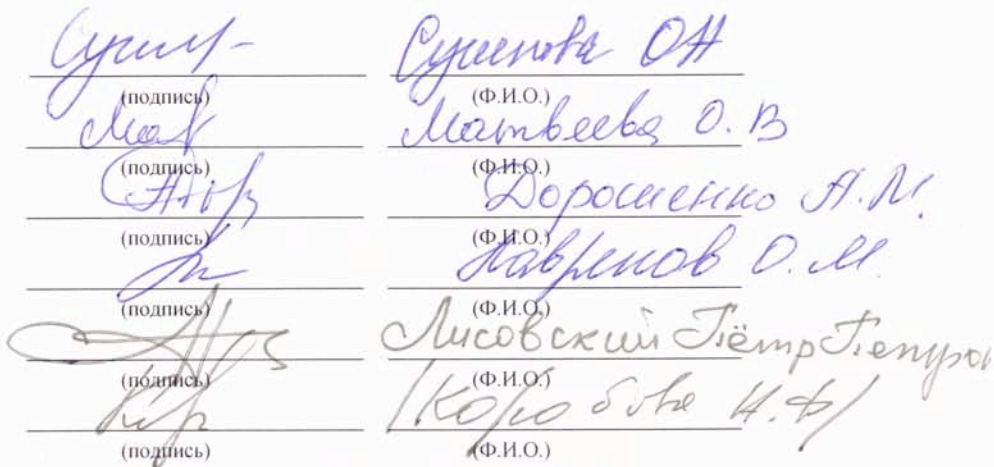 Сушенова ОН
(подпись) (Ф.И.О.)
Матвеева О.В
(подпись) (Ф.И.О.)
Дорошенко А.М.
(подпись) (Ф.И.О.)
О.М.
(подпись) (Ф.И.О.)
Лисовский Пётр
(подпись) (Ф.И.О.)
/Коробова Н.Ф/
(подпись) (Ф.И.О.)